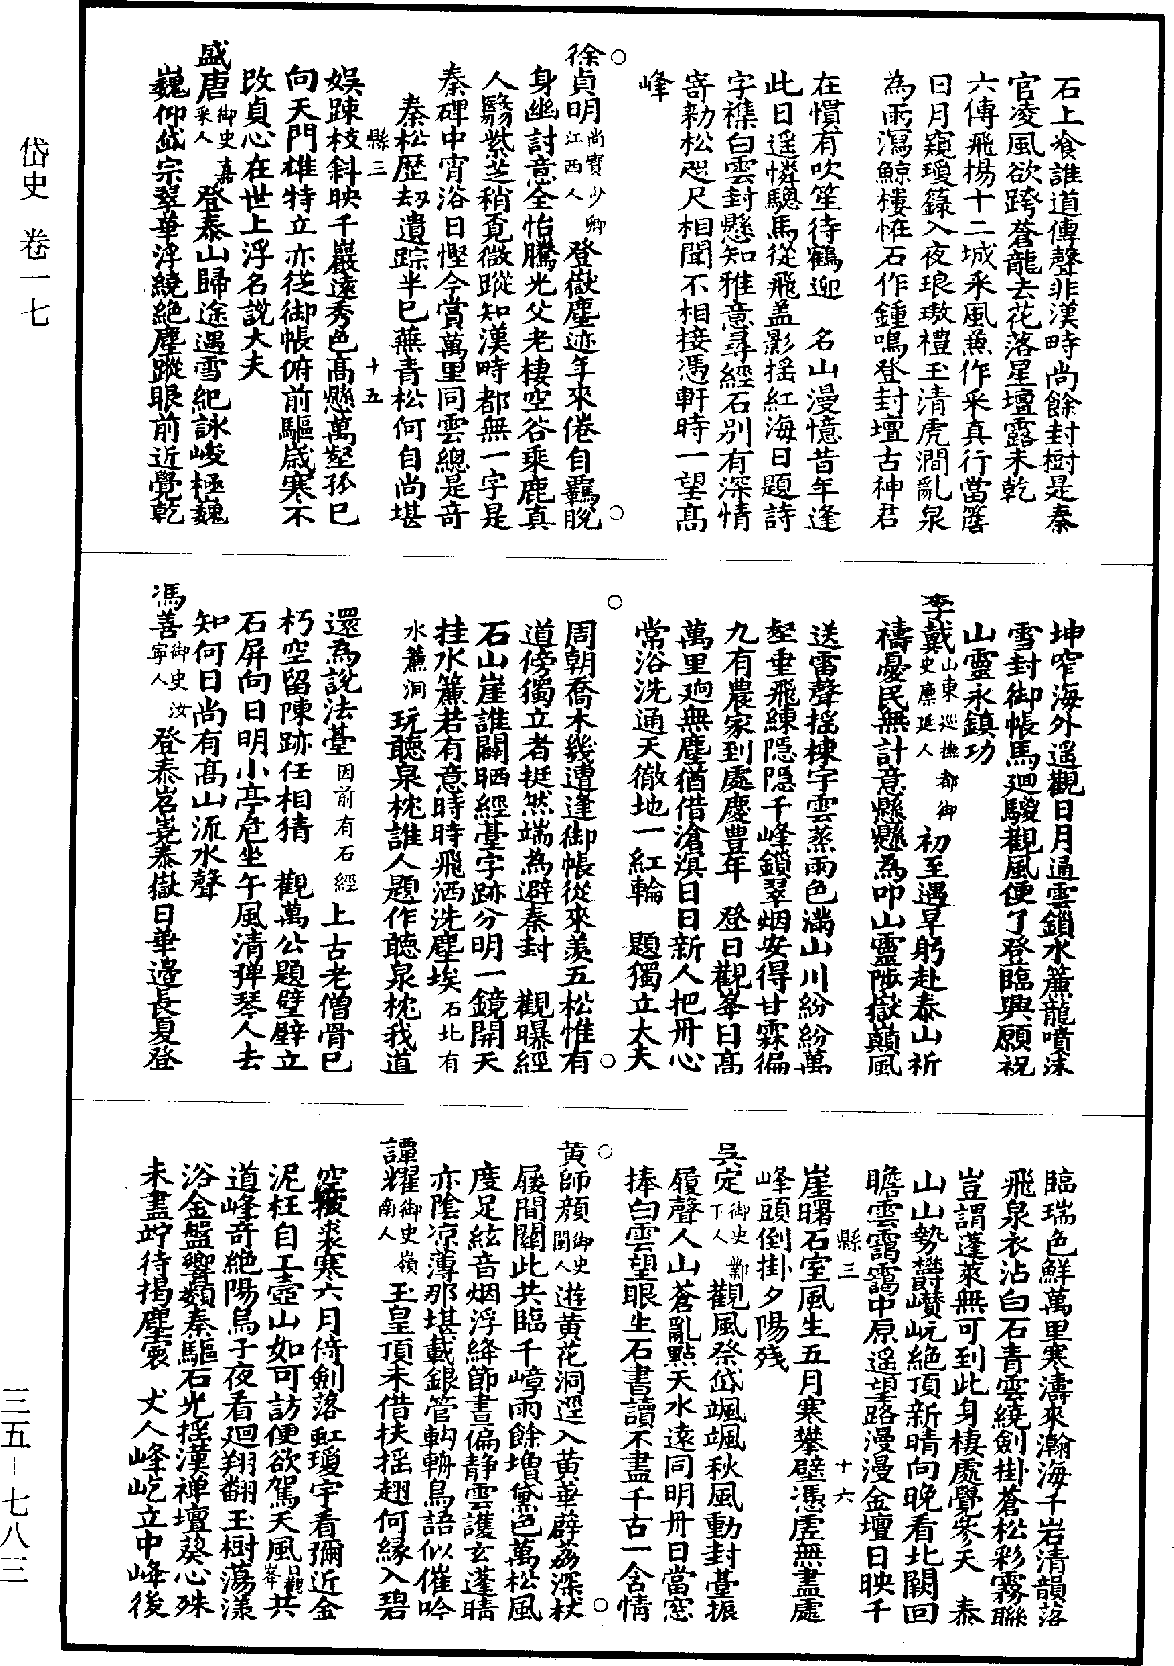 岱史　卷一七
石上飡誰道傳聲非漢時尚餘封樹是秦
官凌風欲跨蒼龍去花落星壇露未乾
六傳飛揚十二城采風兼作采真行當簷
日月窺瓊籙入夜琅璈禮玉清虎澗亂泉
為雨瀉鯨樓恠石作鍾鳴登封壇古神君
在慣有吹笙待鶴迎　名山漫憶昔年逢
此日遥憐驄馬從飛盖影摇紅海日題詩
字襍白雲封懸知雅意尋經石别有深情
寄勑松咫尺相聞不相接憑軒時一望髙
峰
○
徐貞明尚寶少卿江西人　登嶽塵迹年來倦自羈脱
身幽討意全怡騰光父老棲空谷乘鹿真
人翳紫芝稍覔微蹤知漢時都無一字是
秦碑中宵浴日慳今賞萬里同雲總是竒
秦松歴刼遺踪半已蕪青松何自尚堪
縣三　十五
娱踈枝斜映千巖逺秀色髙懸萬壑孤已
向天門雄特立亦從御帳俯前驅歳寒不
改貞心在世上浮名説大夫
盛唐御史嘉禾人　登泰山歸途遇雪紀詠峻極巍
巍仰岱宗翠華浮繞絶塵蹤眼前近覺乾
坤窄海外遥觀日月通雲鎖水簾龍噴沫
雪封御帳馬廻騣觀風便了登臨興願祝
山靈永鎮功
李戴山東巡撫都御史廪延人　初至遇旱躬赴泰山祈
禱憂民無計意懸懸為叩山靈陟嶽巔風
送雷聲摇棟宇雲蒸雨色滿山川紛紛萬
壑垂飛練隠隠千峰鎖翠烟安得甘霖徧
九有農家到處慶豊年　登日觀峯日髙
萬里逈無塵猶借滄溟日日新人把丹心
常浴洗通天徹地一紅輪　題獨立大夫
○
周朝喬木幾遭逢御帳從來羨五松惟有
道傍獨立者挺然端為避秦封　觀曝經
石山崖誰闢晒經臺字跡分明一鏡開天
挂水簾若有意時時飛洒洗塵埃石北有
水簾洞　玩聽泉枕誰人題作聽泉枕我道
還為説法臺因前有石經　上古老僧骨已
朽空留陳跡任相猜　觀萬公題壁壁立
石屏向日明小亭危坐午風清弹琴人去
知何日尚有髙山流水聲
馮善御史汝寧人　登泰岩嶤泰嶽日華邉長夏登
臨瑞色鮮萬里寒濤來瀚海千岩清韻落
飛泉衣沾白石青雲繞劍掛蒼松彩霧聯
豈謂蓬萊無可到此身棲處覺寥天　泰
山山勢欝巑岏絶頂新晴向晚看北闕回
瞻雲靄靄中原遥望路漫漫金壇日映千
縣三　十六
崖曙石室風生五月寒攀壁憑虚無盡處
峰頭倒掛夕陽殘
吳定御史鄞下人　觀風祭岱颯颯秋風動封臺振
履聲人山蒼亂點天水逺同明丹日當窓
捧白雲望眼生石書讀不盡千古一含情
○
黄師顔御史閩人　逰黄花洞逕入黄華薜荔深杖
屨間關此共臨千嶂雨餘増黛色萬松風
度足絃音烟浮絳節晝偏静雲護玄蓬晴
亦陰凉薄那堪載銀管鈎輈鳥語似催吟
譚耀御史嶺南人　玉皇頂未借扶摇趐何縁入碧
空披裘寒六月倚劍落虹瓊宇看彌近金
泥枉自工壺山如可訪便欲駕天風日觀峯　共
道峰竒絶陽烏子夜看廻翔翻玉樹蕩漾
浴金盤響類秦驅石光摇漢禪壇葵心殊
未盡跱待掲塵寰　丈人峰屹立中峰後
三五－七八三